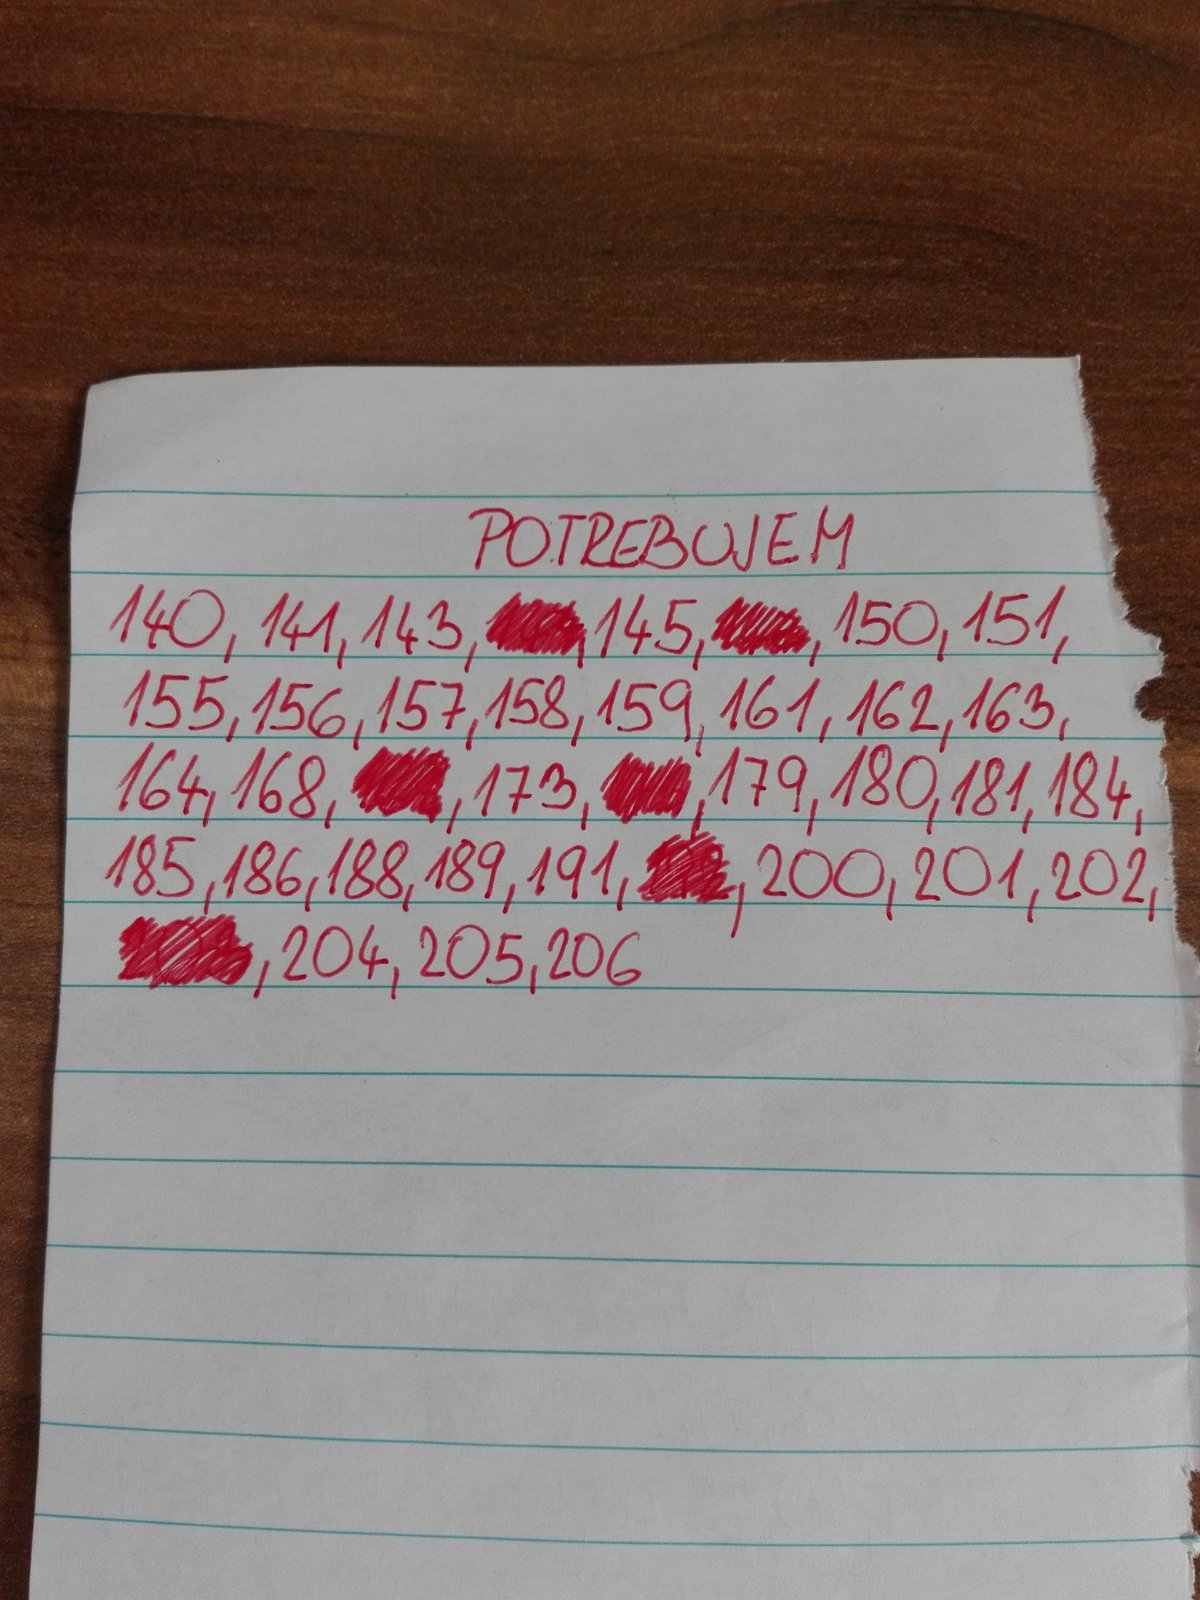 POTREBUJEM
140, 141, 143, , 145, , 150, 151,
155, 156, 157, 158, 159, 161, 162, 163,
164, 168, , 173, , 179, 180, 181, 184,
185, 186, 188, 189, 191, , 200, 201, 202,
, 204, 205, 206